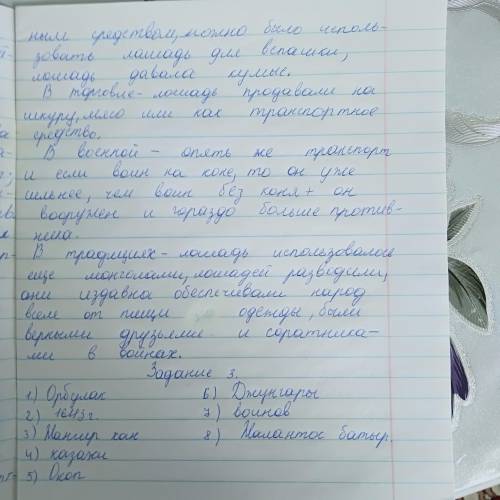 ным средством, можно было исполь-
зовать лошадь для вспашки,
лошадь давала кумыс.
В торговле - лошадь продавали на
шкуру, мясо или как транспортное
средство.
В военной - опять же транспорт
и если воин на коне, то он уже
сильнее, чем воин без коня + он
вооружен и гораздо больше против-
ника.
В традициях - лошадь использовалось
еще монголами, лошадей разводили,
они издавна обеспечивали народ
всем от пищи одежды, были
верными друзьями и соратника-
ми в войнах.
Задание 3.
1) Орбулак 6) Джунгары
2) 1643 г. 7) воинов
3) Жангир хан 8) Жалантос батыр.
4) казахи
5) Окоп